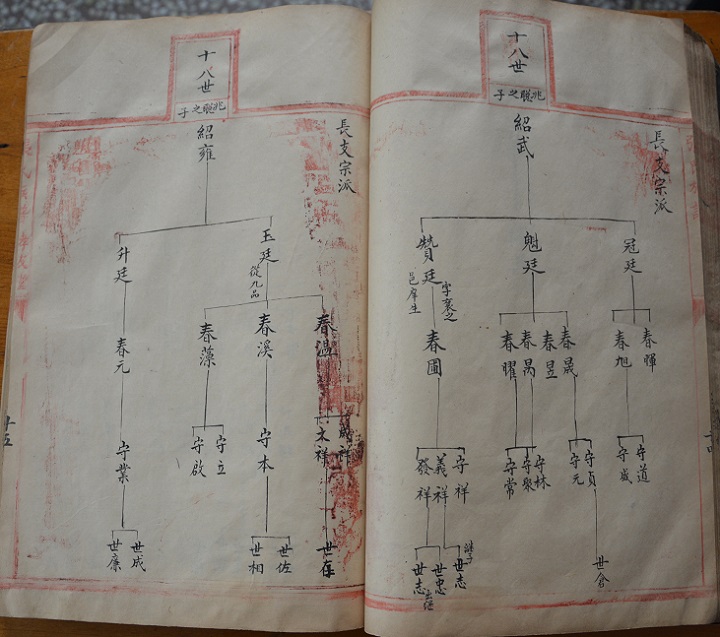 十八世
兆聰之子
長支宗派
紹武
冠廷
魁廷
贊廷
字襄之
邑庠生
春暉
春旭
春晟
春昱
春昺
春曜
春圃
守道
守成
守貞
守元
守林
守聚
守常
守祥
義祥
發祥
世會
世志
世忠
世志
十八世
兆聰之子
長支宗派
紹雍
玉廷
從九品
升廷
春溫
春溪
春藻
春元
成祥
太祥
守本
守立
守啟
守業
世存
世佐
世相
世成
世廉
十五